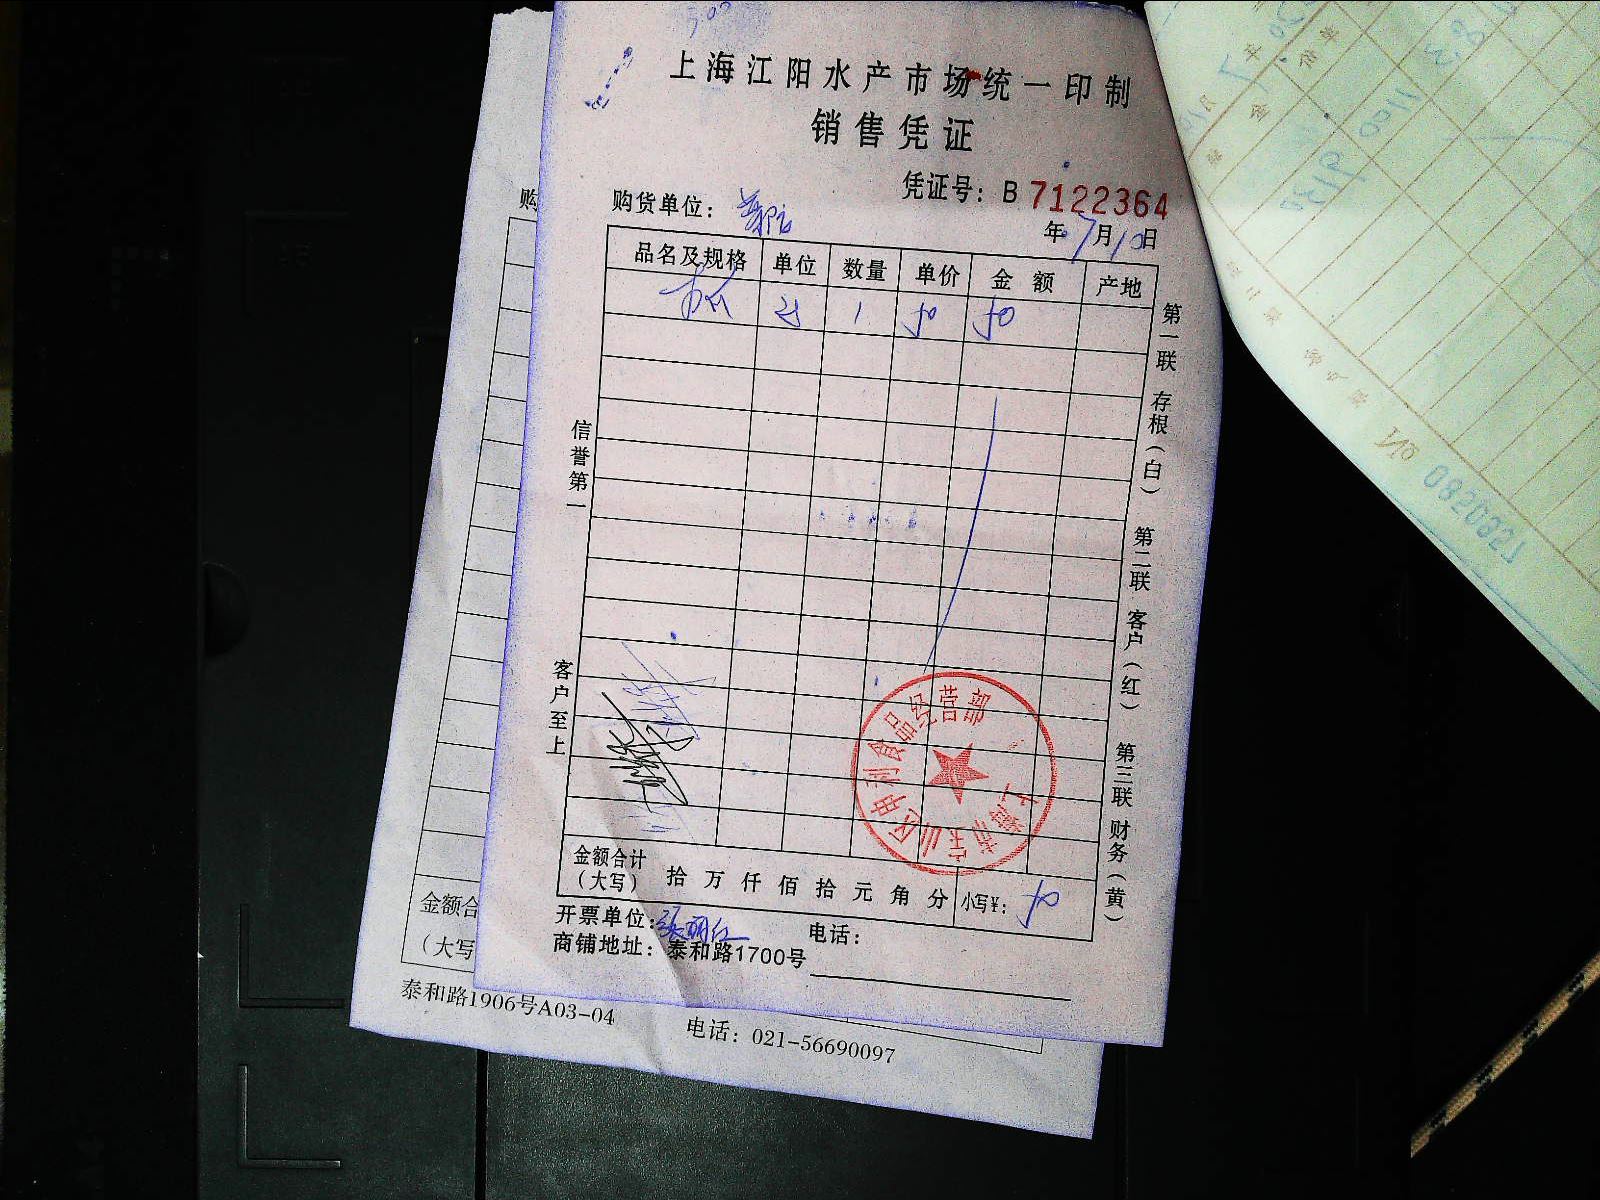 上海江阳水产市场统一印制
销售凭证
凭证号：B 7122364
购货单位：
年 7月10日
品名及规格 单位 数量 单价 金额 产地
1 50 50
第一联 存根（白） 第二联 客户（红） 第三联 财务（黄）
信誉第一
客户至上
上海市宝山区申利食品经营部
金额合计
（大写） 拾 万 仟 佰 拾 元 角 分 小写¥： 50
开票单位：张丽红 电话：
商铺地址：泰和路1700号
购
金额合
（大写
泰和路1906号A03-04 电话：021-56690097
No 0820827